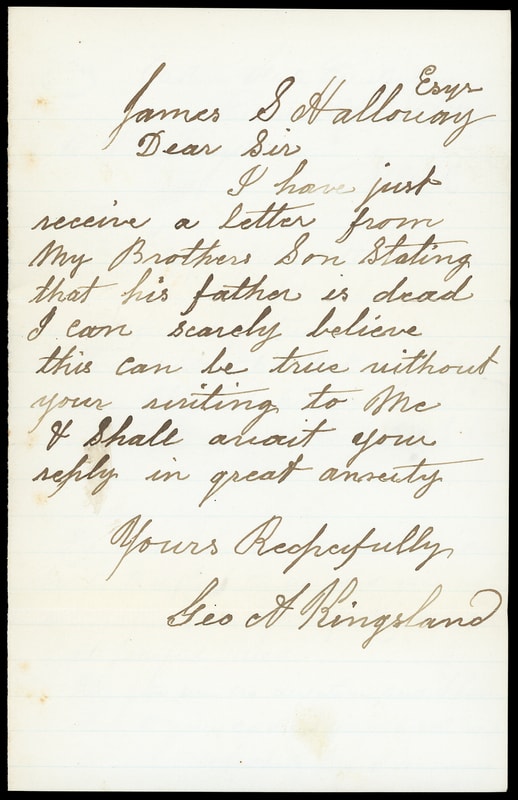 Esqr
James S Halloway
Dear Sir
I have just
receive a letter from
My Brothers Son Stating
that his father is dead
I can scarely believe
this can be true without
your writing to Me
& Shall await your
reply in great anxiety
Yours Respecfully
Geo A Kingsland